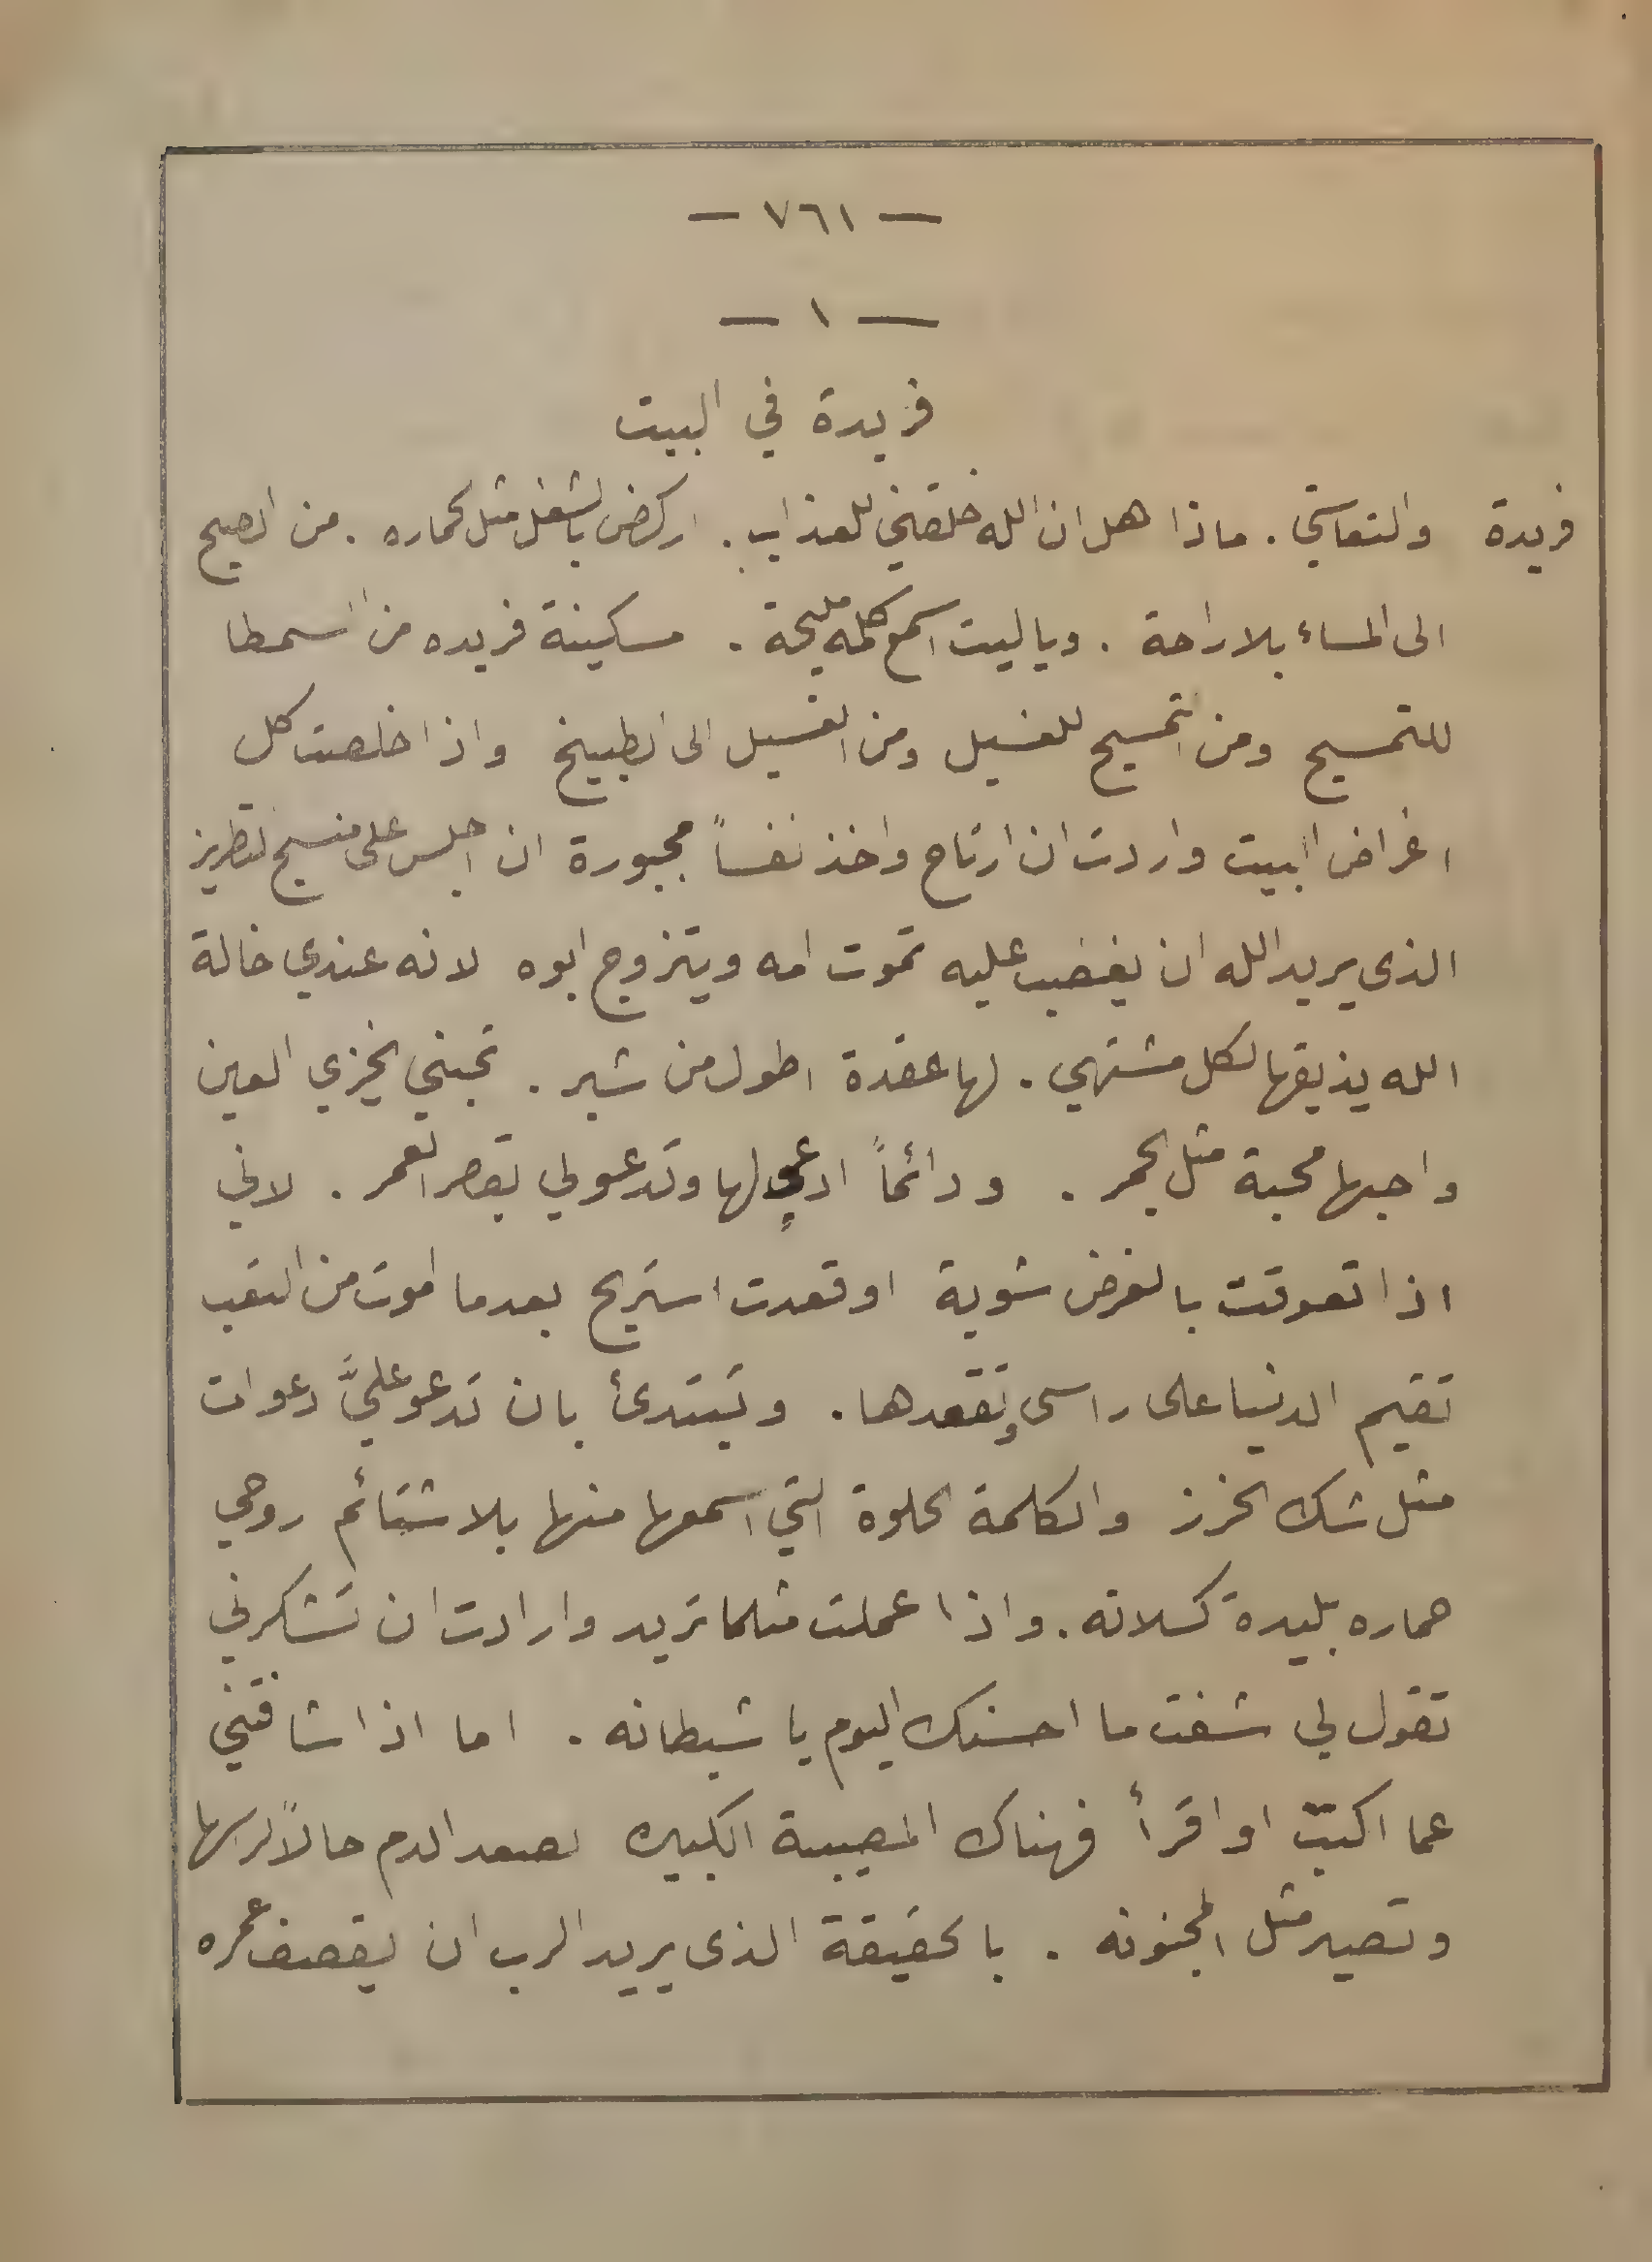 — ٧٦١ —
— ١ —
فريدة في البيت
فريدة والتعاستي . ماذا هل ان الله خلقني للعذاب . اركض بالشغل مثل لحماره . من الصبح
الى المساء بلا راحة . ويا ليت اسمع كلمه مليحة . مسكينة فريده من
للتمسيح ومن التمسيح للغسيل ومن الغسيل الى الطبيخ واذا خلصت كل
اغراض البيت واردت ان ارتاح واخذ نفساً مجبورة ان اجلس على منسج لتطريز
الذى يريد الله ان يغضب عليه تموت امه ويتزوج ابوه لانه عندي خالة
الله يذيقها لكل مشتهي . لها عقدة اطول من شبر . تحبني يخزي العين
واحبها محبة مثل الجمر . ودائماً ادعي لها وتدعو لي بقصر العمر . لاني
اذا تعوقت بالغرض شوية او قعدت استريح بعدما اموت من التعب
تقيم الدنيا على راسى وتقعدها . وتبتدئ بان تدعو عليَّ دعوات
مثل شك الخرز والكلمة الحلوة التي اسمعها منها بلا شتائم روحي
حماره بليدة كسلانه . واذا عملت مثلما تريد وارادت ان تشكرني
تقول لي شفت ما احسنك اليوم يا شيطانه . اما اذا شافتني
عما اكتب او اقرأ فهناك المصيبة الكبيره يصعد الدم حالاً لراسها
وتصير مثل المجنونه . بالحقيقة الذى يريد الرب ان يقصف عمره